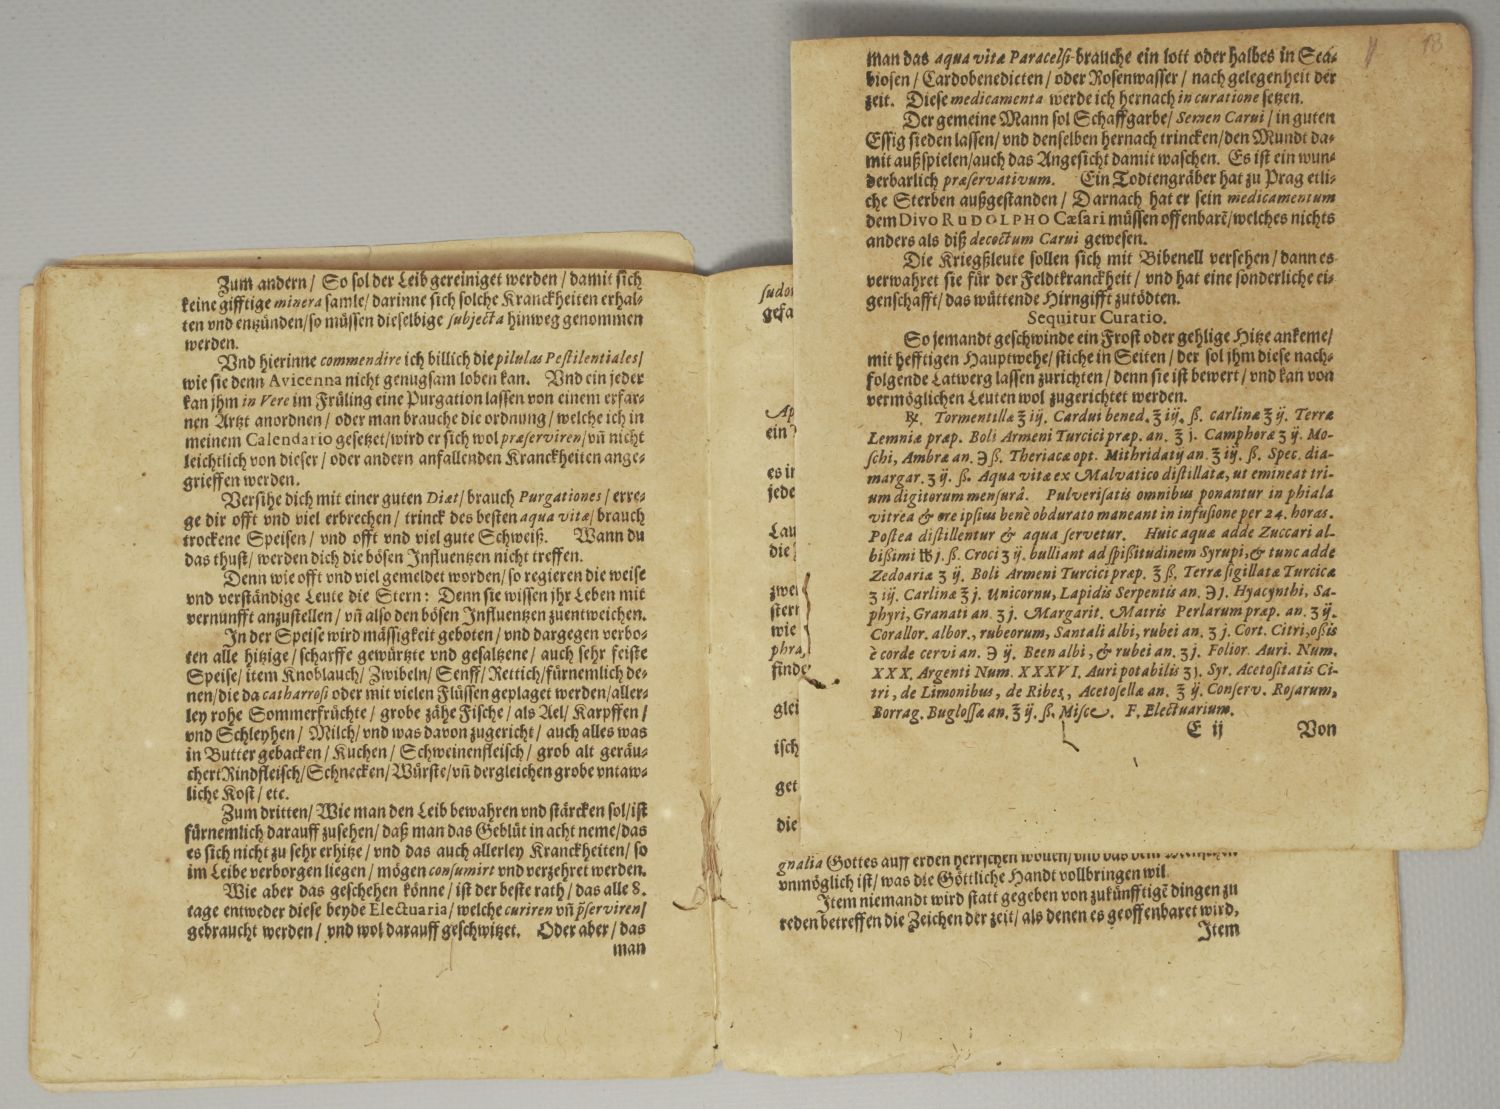 Zum andern / So sol der Leib gereiniget werden / damit sich
keine gifftige minera samle / darinne sich solche Kranckheiten erhal-
ten vnd entzünden / so müssen dieselbige subjecta hinweg genommen
werden.
Vnd hierinne commendire ich billich die pilulas Pestilentiales /
wie sie denn Avicenna nicht genugsam loben kan. Vnd ein jeder
kan jhm in Vere im Früling eine Purgation lassen von einem erfar-
nen Artzt anordnen / oder man brauche die ordnung / welche ich in
meinem Calendario gesetzet / wird er sich wol præserviren / vñ nicht
leichtlich von dieser / oder andern anfallenden Kranckheiten ange-
grieffen werden.
Versihe dich mit einer guten Diæt / brauch Purgationes / erre-
ge dir offt vnd viel erbrechen / trinck des besten aqua vitæ / brauch
trockene Speisen / vnd offt vnd viel gute Schweiß. Wann du
das thust / werden dich die bösen Influentzen nicht treffen.
Denn wie offt vnd viel gemeldet worden / so regieren die weise
vnd verständige Leute die Stern: Denn sie wissen jhr Leben mit
vernunfft anzustellen / vñ also den bösen Influentzen zuentweichen.
In der Speise wird mässigkeit geboten / vnd dargegen verbo-
ten alle hitzige / scharffe gewürtzte vnd gesaltzene / auch sehr feiste
Speise / item Knoblauch / Zwibeln / Senff / Rettich / fürnemlich de-
nen / die da catharrosi oder mit vielen Flüssen geplaget werden / aller-
ley rohe Sommerfrüchte / grobe zähe Fische / als Ael / Karpffen /
vnd Schleyhen / Milch / vnd was davon zugericht / auch alles was
in Butter gebacken / Kuchen / Schweinenfleisch / grob alt geräu-
chert Rindfleisch / Schnecken / Würste / vñ dergleichen grobe vntaw-
liche Kost / etc.
Zum dritten / Wie man den Leib bewahren vnd stärcken sol / ist
fürnemlich darauff zusehen / daß man das Geblüt in acht neme / das
es sich nicht zu sehr erhitze / vnd das auch allerley Kranckheiten / so
im Leibe verborgen liegen / mögen consumirt vnd verzehret werden.
Wie aber das geschehen könne / ist der beste rath / das alle 8.
tage entweder diese beyde Electuaria / welche curiren vñ p̃serviren /
gebraucht werden / vnd wol darauff geschwitzet. Oder aber / das
man
man das aqua vitæ Paracelsi brauche ein lott oder halbes in Sca-
biosen / Cardobenedicten / oder Rosenwasser / nach gelegenheit der
zeit. Diese medicamenta werde ich hernach in curatione setzen.
Der gemeine Mann sol Schaffgarbe / Semen Carui / in guten
Essig sieden lassen / vnd denselben hernach trincken / den Mundt da-
mit außspielen / auch das Angesicht damit waschen. Es ist ein wun-
derbarlich præservativum. Ein Todtengräber hat zu Prag etli-
che Sterben außgestanden / Darnach hat er sein medicamentum
dem Divo RUDOLPHO Cæsari müssen offenbarẽ / welches nichts
anders als diß decoctum Carui gewesen.
Die Kriegßleute sollen sich mit Bibenell versehen / dann es
verwahret sie für der Feldtkranckheit / vnd hat eine sonderliche ei-
genschafft / das wüttende Hirngifft zutödten.
Sequitur Curatio.
So jemandt geschwinde ein Frost oder gehlige Hitze ankeme /
mit hefftigen Hauptwehe / stiche in Seiten / der sol jhm diese nach-
folgende Latwerg lassen zurichten / denn sie ist bewert / vnd kan von
vermöglichen Leuten wol zugerichtet werden.
℞. Tormentillæ ℥ iij. Cardui bened. ℥ iij. ß. carlinæ ℥ ij. Terræ
Lemniæ præp. Boli Armeni Turcici præp. an. ℥ j. Camphoræ ℥ ij. Mo-
schi, Ambræ an. ℈ ß. Theriacæ opt. Mithridatij an. ℥ iij. ß. Spec. dia-
margar. ℥ ij. ß. Aqua vitæ ex Malvatico distillatæ, ut emineat tri-
um digitorum mensurâ. Pulverisatis omnibus ponantur in phiala
vitrea & ore ipsius benè obdurato maneant in infusione per 24. horas.
Postea distillentur & aqua servetur. Huic aquæ adde Zuccari al-
bißimi ℔ j. ß. Croci ʒ ij. bulliant ad spißitudinem Syrupi, & tunc adde
Zedoariæ ʒ ij. Boli Armeni Turcici præp. ℥ ß. Terræ sigillatæ Turcicæ
ʒ iij. Carlinæ ℥ j. Unicornu, Lapidis Serpentis an. ℈ j. Hyacynthi, Sa-
phyri, Granati an. ʒ j. Margarit. Matris Perlarum præp. an. ʒ ij.
Corallor. albor., rubeorum, Santali albi, rubei an. ʒ j. Cort. Citri, oßis
è corde cervi an. ℈ ij. Been albi, & rubei an. ʒ j. Folior. Auri. Num.
XXX. Argenti Num. XXXVI. Auri potabilis ʒ j. Syr. Acetositatis Ci-
tri, de Limonibus, de Ribes, Acetosellæ an. ℥ ij. Conserv. Rosarum,
Borrag. Buglossæ an. ℥ ij. ß. Misce. F. Electuarium.
E ij Von
18
gefa
ein
es in
jede
Lau
die
zwei
stern
wie
phra
finde
glei
isch
get
die
gnalia Gottes auff erden herrschen
vnmöglich ist / was die Göttliche Handt vollbringen wil.
Item niemandt wird statt gegeben von zukünfftigẽ dingen zu
reden betreffen die Zeichen der zeit / als denen es geoffenbaret wird.
Item